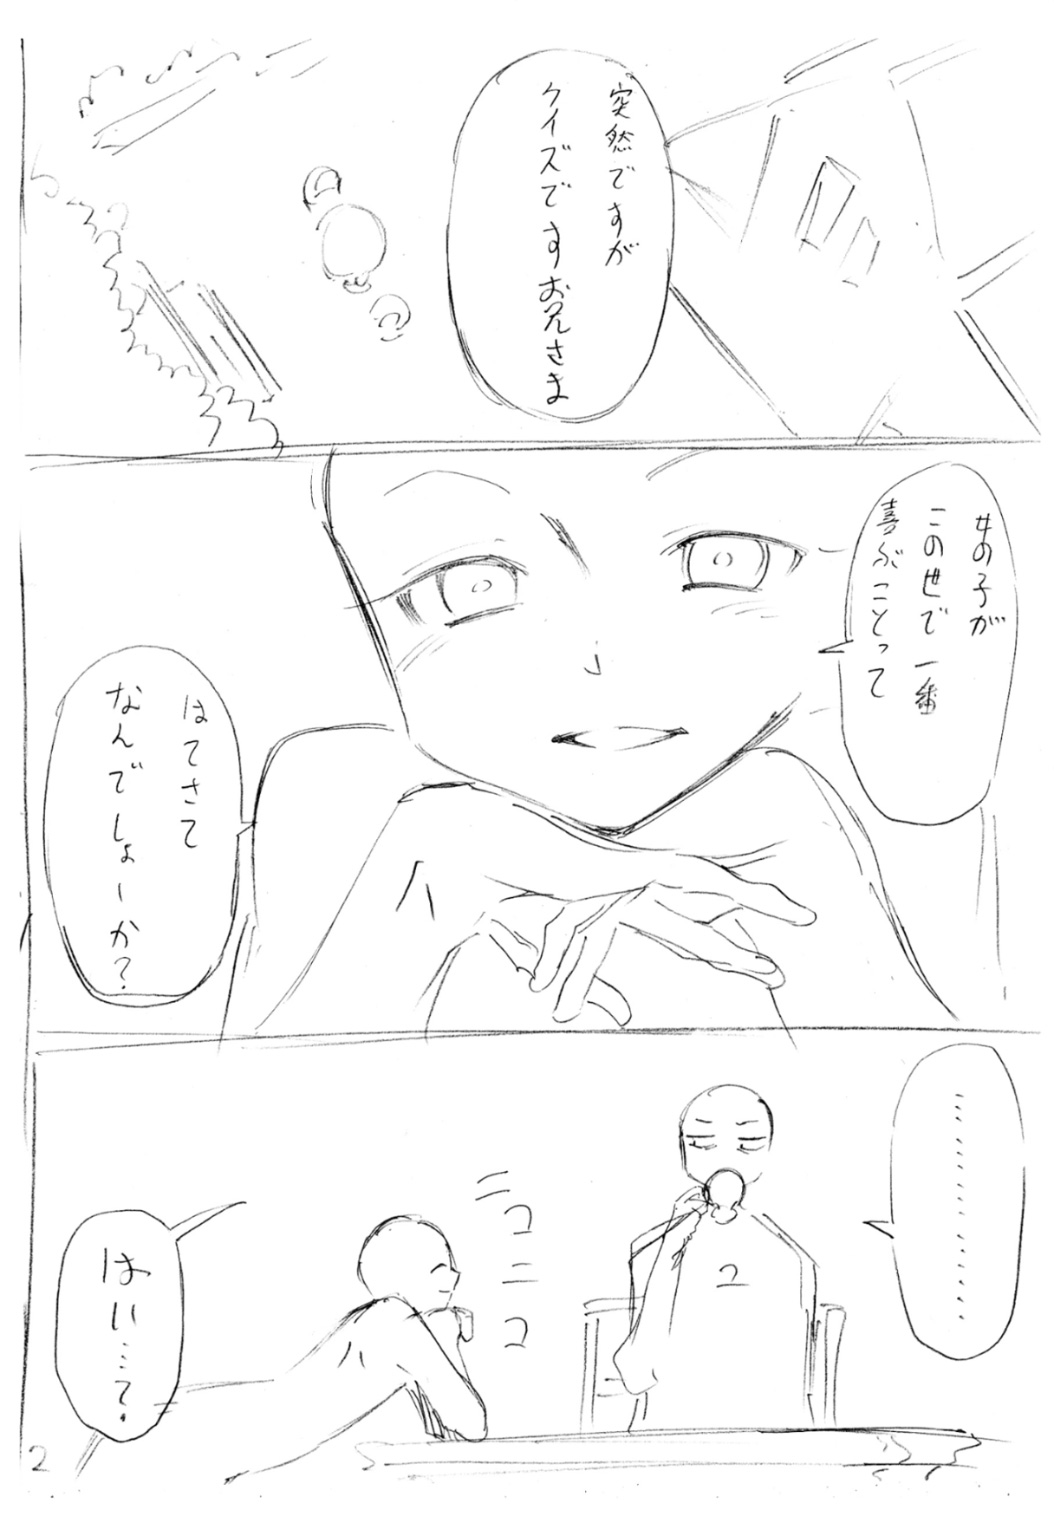 突然ですが
クイズですお兄さま
女の子が
この世で一番
喜ぶことって
はてさて
なんでしょーか?
…………………
ニコニコ
はい……て。
2